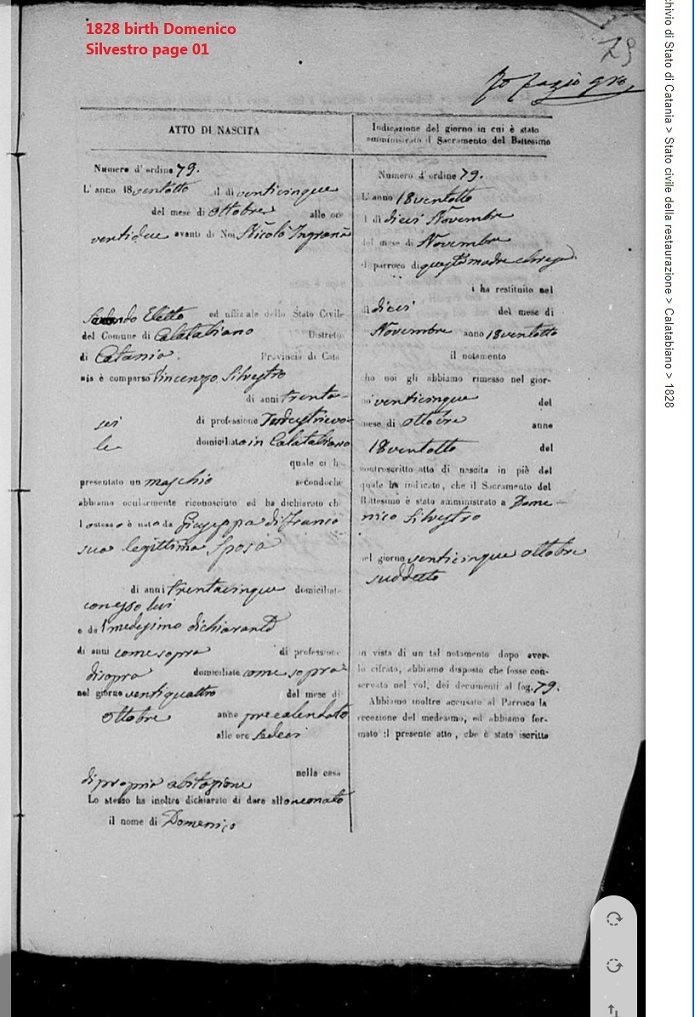 1828 birth Domenico
Silvestro page 01
79
ATTO DI NASCITA
Numero d'ordine 79.
L'anno 18ventotto il di venticinque
del mese di Ottobre alle ore
ventidue avanti di Noi Nicolò
Secondo Eletto ed uffiziale dello Stato Civile
del Comune di Calatabiano Distretto
di Catania. Provincia di Cata
nia è comparso Vincenzo Silvestro
di anni trenta
sei di professione
le domiciliato in Calatabiano
quale ci ha
presentato un maschio secondochè
abbiamo ocularmente riconosciuto ed ha dichiarato ch
l'stesso è nato da Giuseppa di Franco
sua legittima sposa
di anni trentacinque domiciliata
con esso lui
e da l medesimo dichiarante
di anni come sopra di professione
di sopra domiciliato come sopra
nel giorno ventiquattro del mese di
Ottobre anno precalendato
alle ore sedeci
nella casa
di propria abitazione
Lo stesso ha inoltre dichiarato di dare al neonato
il nome di Domenico
Indicazione del giorno in cui è stato
amministrato il Sacramento del Battesimo
Numero d'ordine 79.
L'anno 18ventotto
il di dieci Novembre
del mese di Novembre
il parroco di questa madre chiesa
ci ha restituito nel
di dieci del mese di
Novembre anno 18ventotto
il notamento
che noi gli abbiamo rimesso nel gior-
no venticinque del
mese di ottobre anno
18ventotto del
controscritto atto di nascita in piè del
quale ha indicato, che il Sacramento del
Battesimo è stato amministrato a Dome-
nico Silvestro
nel giorno venticinque ottobre
suddetto
in vista di un tal notamento dopo aver-
lo cifrato, abbiamo disposto che fosse con-
servato nel vol. dei documenti al fog. 79.
Abbiamo inoltre accusato al Parroco la
recezione del medesimo, ed abbiamo for-
mato il presente atto, che è stato iscritto
chivio di Stato di Catania > Stato civile della restaurazione > Calatabiano > 1828